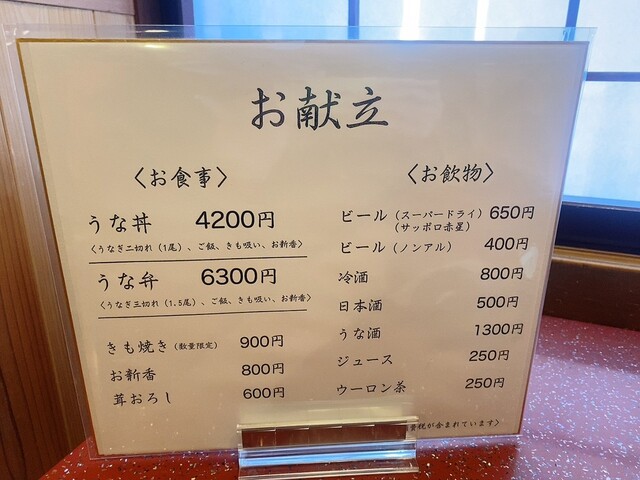 お献立
〈お食事〉
うな丼 4200円
〈うなぎ二切れ（1尾）、ご飯、きも吸い、お新香〉
うな弁 6300円
〈うなぎ三切れ（1.5尾）、ご飯、きも吸い、お新香〉
きも焼き（数量限定） 900円
お新香 800円
茸おろし 600円
〈お飲物〉
ビール（スーパードライ） 650円
（サッポロ赤星）
ビール（ノンアル） 400円
冷酒 800円
日本酒 500円
うな酒 1300円
ジュース 250円
ウーロン茶 250円
費税が含まれています〉